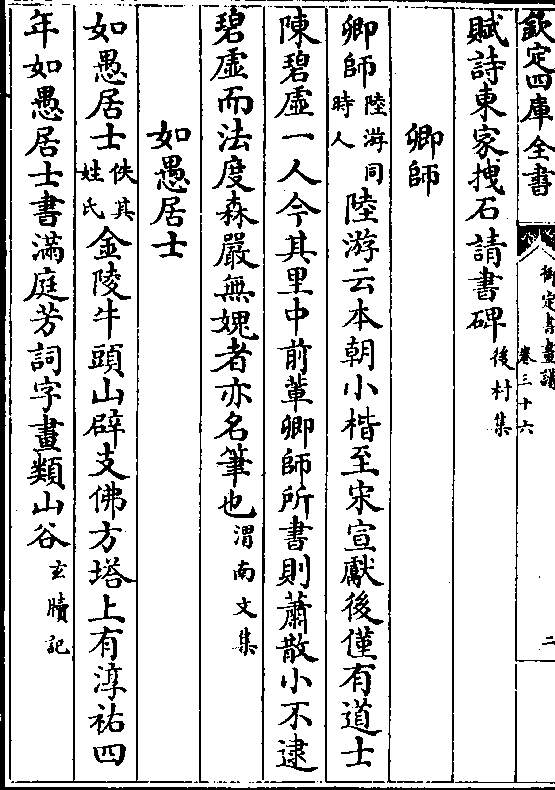 欽定四庫全書
御定書畫譜
卷三十六
二
賦詩東家拽石請書碑後村集
卿師
卿師陸游同時人陸游云本朝小楷至宋宣獻後僅有道士
陳碧虛一人今其里中前輩卿師所書則蕭散小不逮
碧虛而法度森嚴無媿者亦名筆也渭南文集
如愚居士
如愚居士佚其姓氏金陵牛頭山辟支佛方塔上有淳祐四
年如愚居士書滿庭芳詞字畫類山谷玄牘記